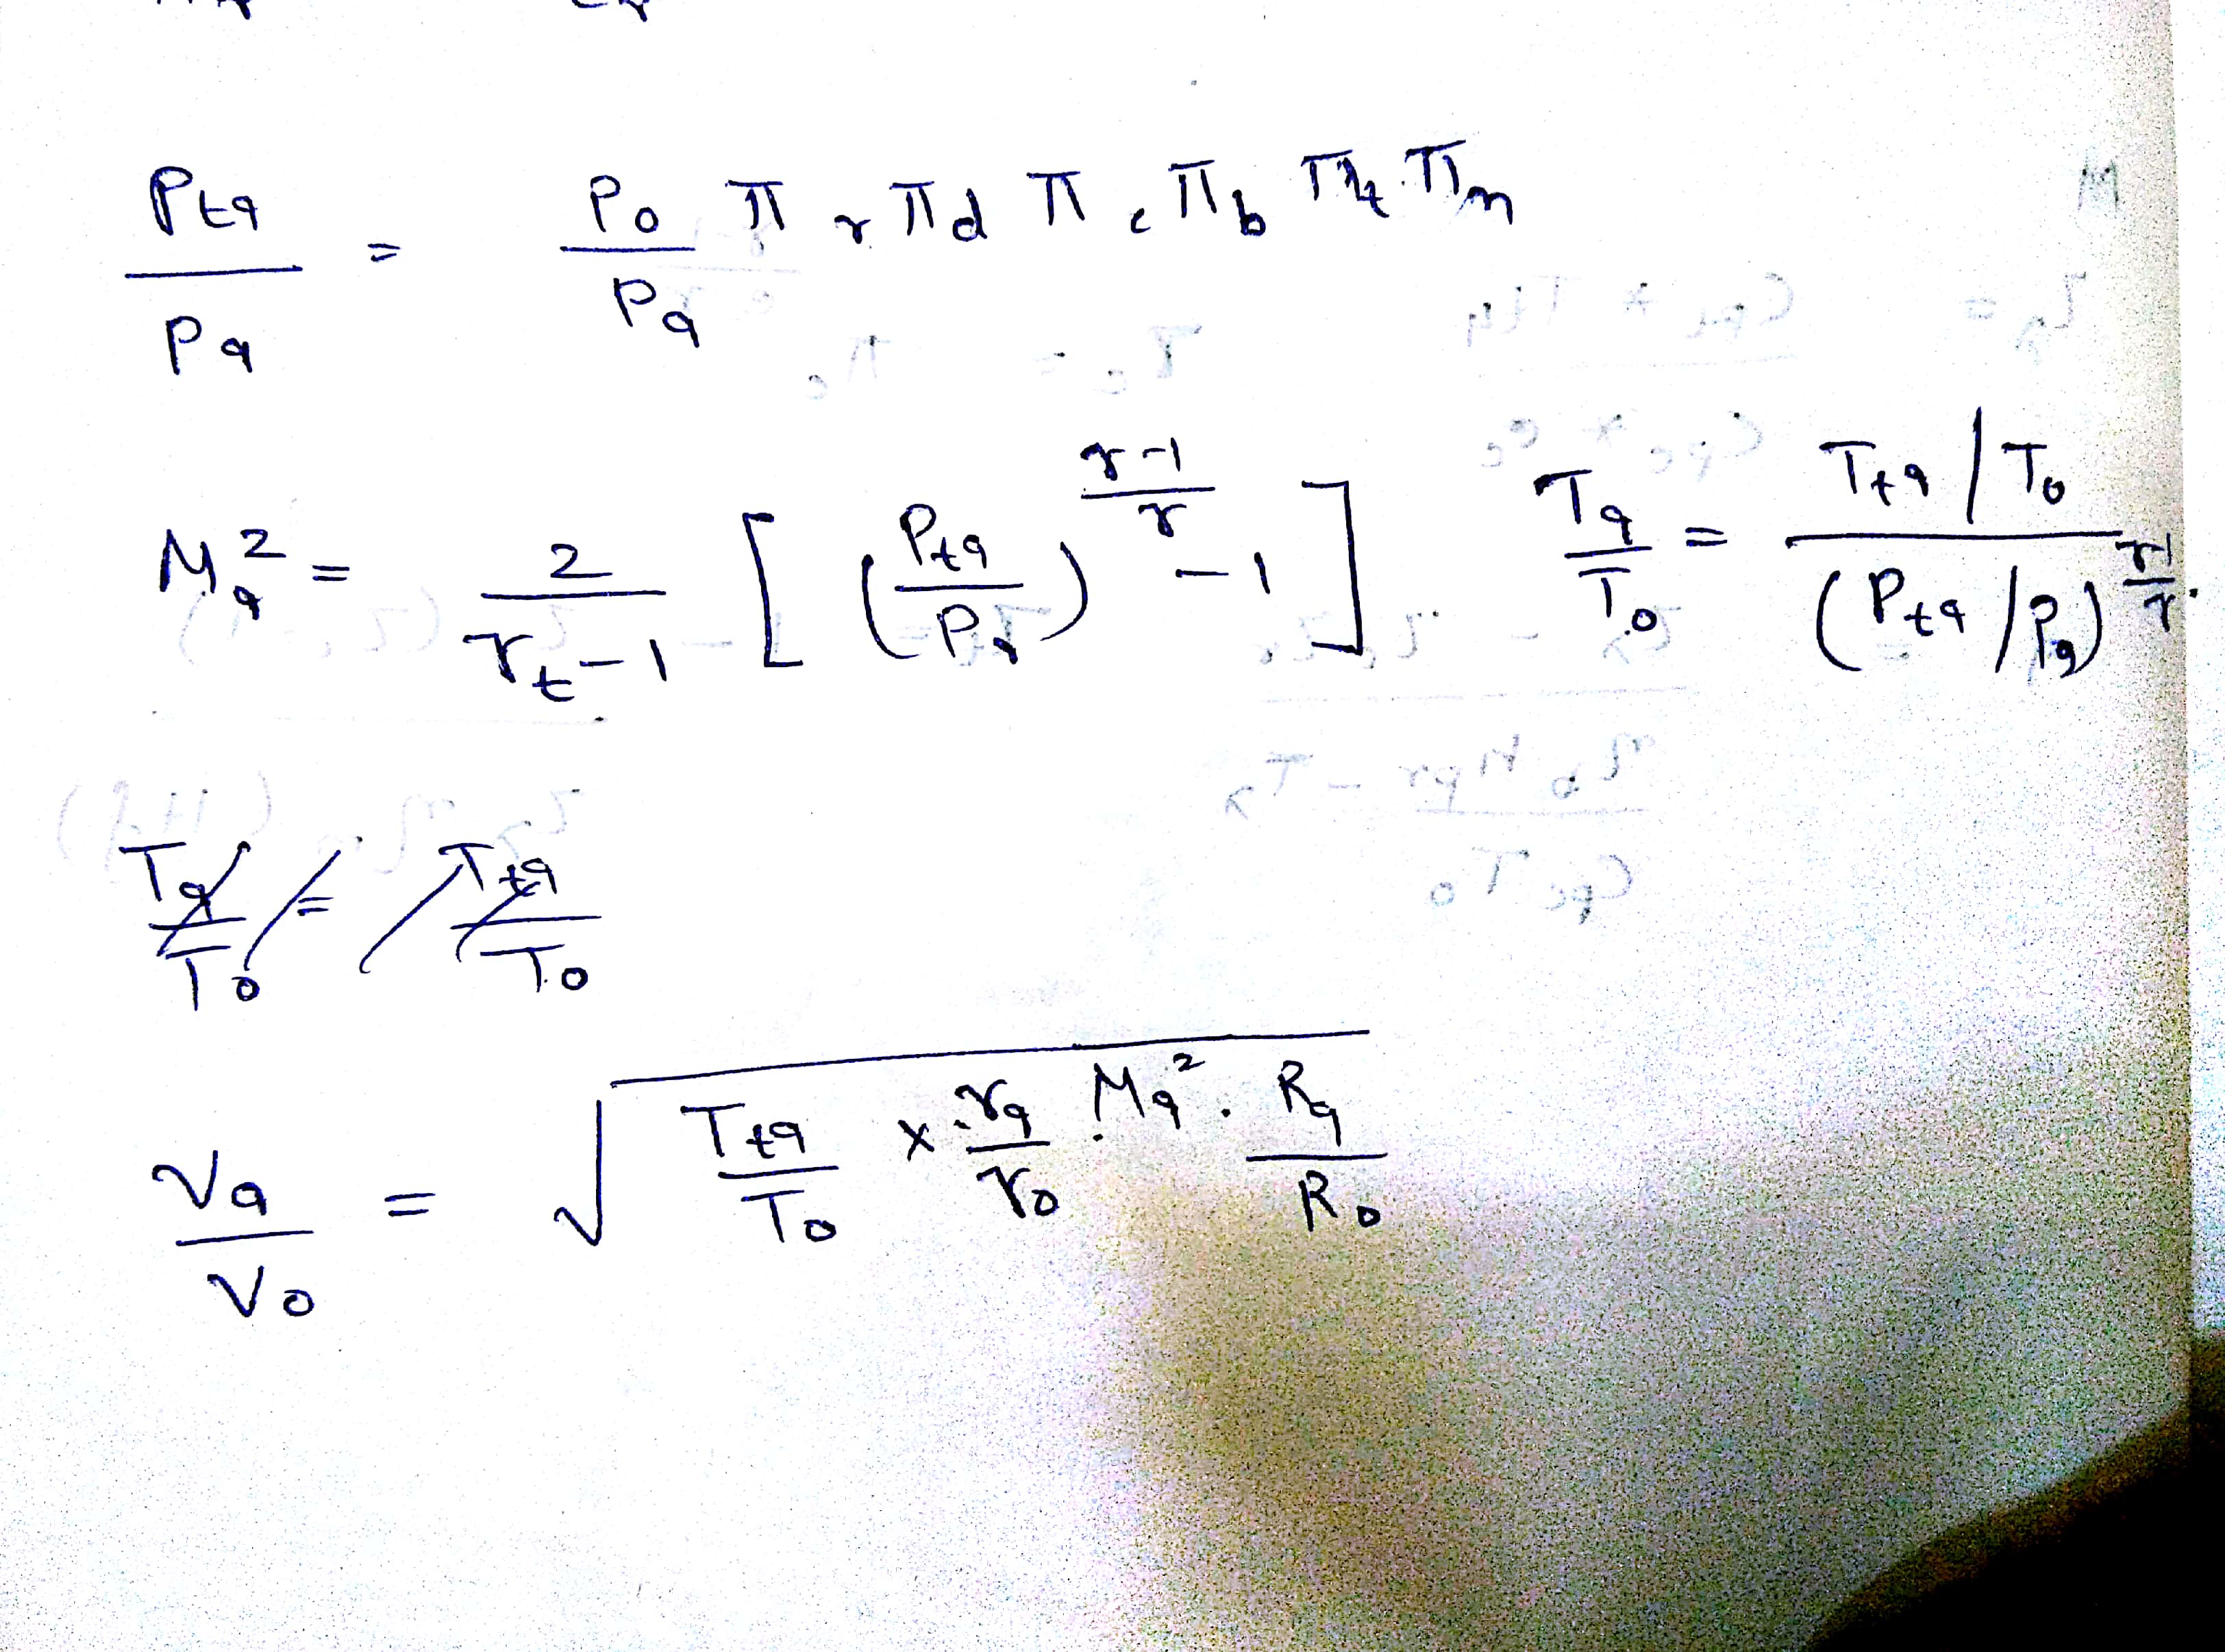 Pt9 / P9 = P0 / P9 π r π d π c π b π t π n
M9² = 2 / (γt − 1) [ (Pt9 / P9)^((γ−1)/γ) − 1 ]   T9 / T0 = (Tt9 / T0) / (Pt9 / P9)^((γ−1)/γ)
T9 / T0 = Tt9 / T0
V9 / V0 = √( Tt9 / T0 × γ9 / γ0 . M9² . R9 / R0 )